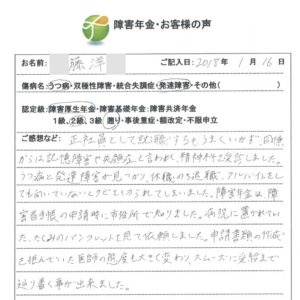 障害年金・お客様の声
お名前: 藤 洋 ご記入日 2018年 1月 16日
傷病名:うつ病・双極性障害・統合失調症・発達障害・その他( )
認定級:障害厚生年金・障害基礎年金・障害共済年金
1級、2級、3級 遡り・事後重症・額改定・不服申立
ご感想など: 正社員として就職するもうまくいかず、同僚
からは記憶障害や失調症と言われ、精神科を受診しました。
うつ病と発達障害が見つかり、休職ののち退職、アルバイトをし
ても向いていないとクビを切られてしまいました。障害年金は障
害者手帳の申請時に市役所で知りました。病院に置かれてい
た、たくみのパンフレットを見て依頼しました。申請書類の作成
を拒んでいた医師の態度も大きく変わり、スムーズに受給まで
辿り着く事が出来ました。